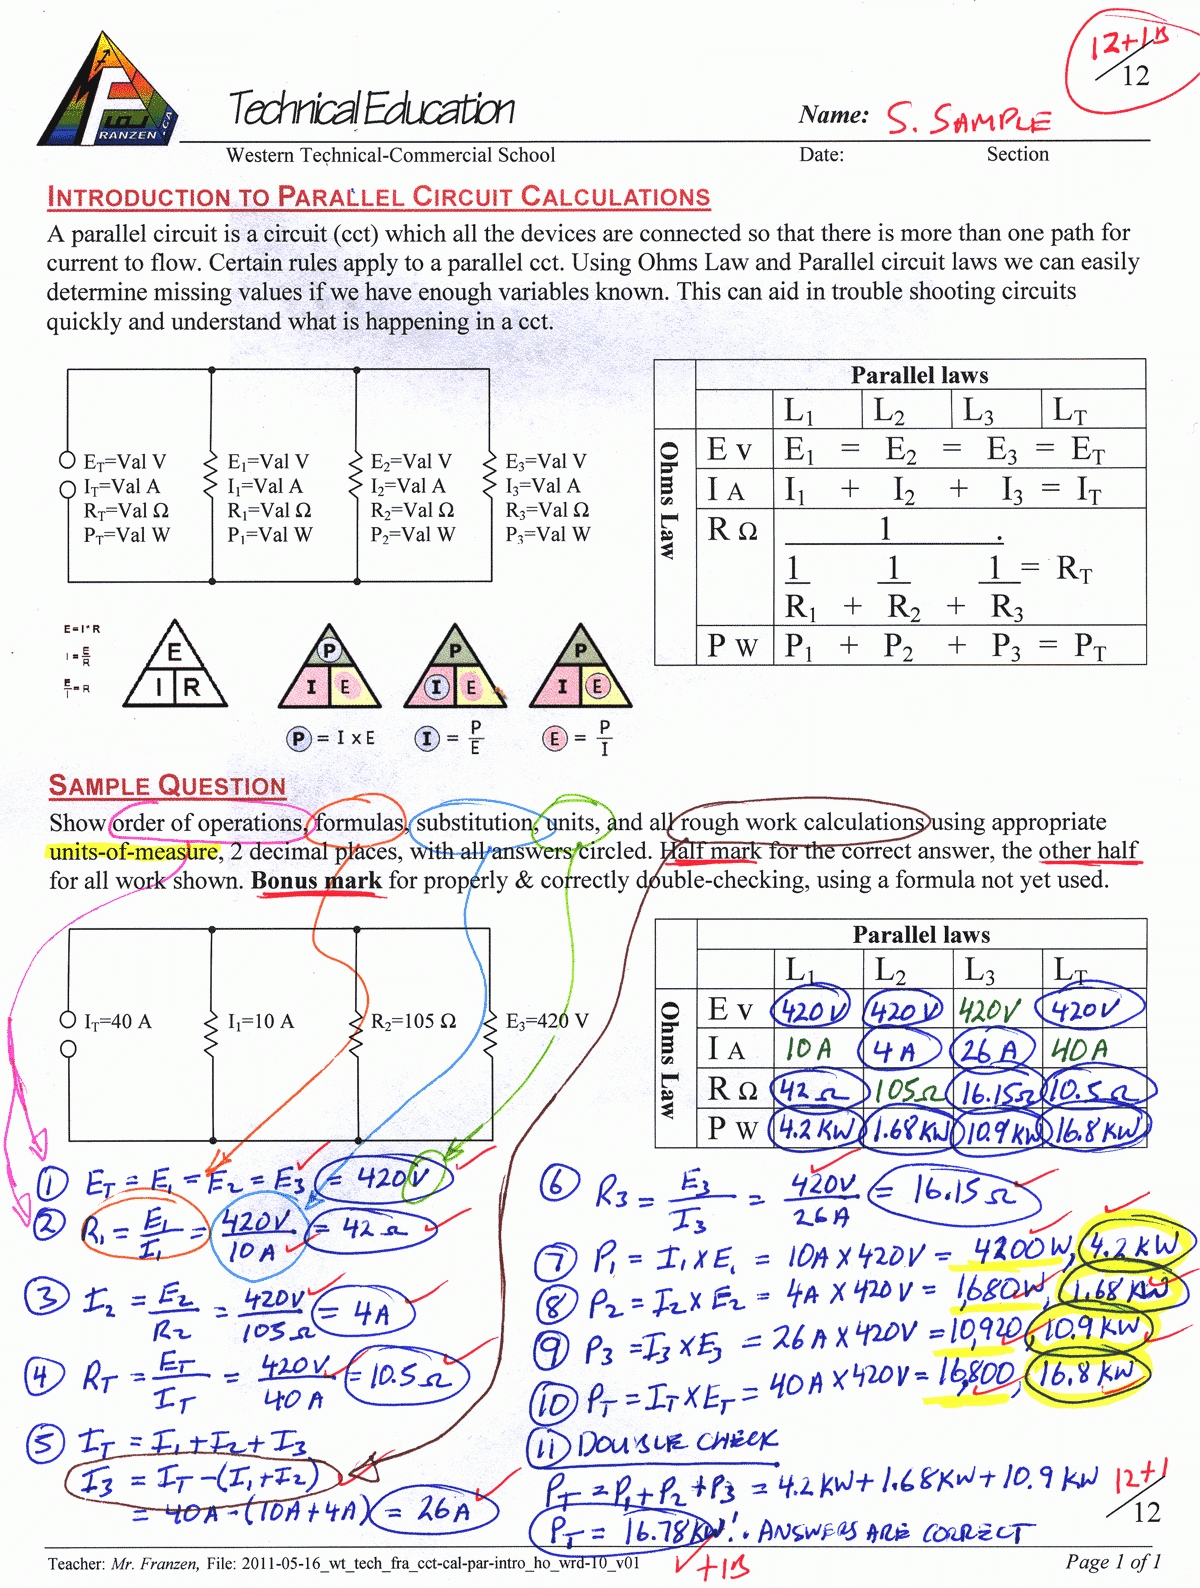 12+1B
/12
FRANZEN.CA
Technical Education
Name: S. SAMPLE
Western Technical-Commercial School
Date: Section
INTRODUCTION TO PARALLEL CIRCUIT CALCULATIONS
A parallel circuit is a circuit (cct) which all the devices are connected so that there is more than one path for
current to flow. Certain rules apply to a parallel cct. Using Ohms Law and Parallel circuit laws we can easily
determine missing values if we have enough variables known. This can aid in trouble shooting circuits
quickly and understand what is happening in a cct.
ET=Val V E1=Val V E2=Val V E3=Val V
IT=Val A I1=Val A I2=Val A I3=Val A
RT=Val Ω R1=Val Ω R2=Val Ω R3=Val Ω
PT=Val W P1=Val W P2=Val W P3=Val W
Parallel laws
L1 L2 L3 LT
Ohms Law
E v E1 = E2 = E3 = ET
I A I1 + I2 + I3 = IT
R Ω 1 .
1 1 1 = RT
R1 + R2 + R3
P w P1 + P2 + P3 = PT
E=I*R
I=E/R
E/I=R
E
I R
P
I E
P
I E
P
I E
P = I x E I = P/E E = P/I
SAMPLE QUESTION
Show order of operations, formulas, substitution, units, and all rough work calculations using appropriate
units-of-measure, 2 decimal places, with all answers circled. Half mark for the correct answer, the other half
for all work shown. Bonus mark for properly & correctly double-checking, using a formula not yet used.
IT=40 A I1=10 A R2=105 Ω E3=420 V
Parallel laws
L1 L2 L3 LT
Ohms Law
E v 420V 420V 420V 420V
I A 10A 4A 26A 40A
R Ω 42Ω 105Ω 16.15Ω 10.5Ω
P w 4.2KW 1.68KW 10.9KW 16.8KW
① ET = E1 = E2 = E3 = 420V
② R1 = E1/I1 = 420V/10A = 42Ω
③ I2 = E2/R2 = 420V/105Ω = 4A
④ RT = ET/IT = 420V/40A = 10.5Ω
⑤ IT = I1+I2+I3
I3 = IT-(I1+I2)
= 40A-(10A+4A) = 26A
⑥ R3 = E3/I3 = 420V/26A = 16.15Ω
⑦ P1 = I1XE1 = 10AX420V = 4200W, 4.2KW
⑧ P2 = I2XE2 = 4AX420V = 1,680W, 1.68KW
⑨ P3 = I3XE3 = 26AX420V = 10,920, 10.9KW
⑩ PT = ITXET = 40AX420V = 16,800, 16.8KW
⑪ DOUBLE CHECK
PT = P1+P2+P3 = 4.2KW+1.68KW+10.9KW
PT = 16.78KW ∴ ANSWERS ARE CORRECT
12+1
/12
✓+1B
Teacher: Mr. Franzen, File: 2011-05-16_wt_tech_fra_cct-cal-par-intro_ho_wrd-10_v01 Page 1 of 1